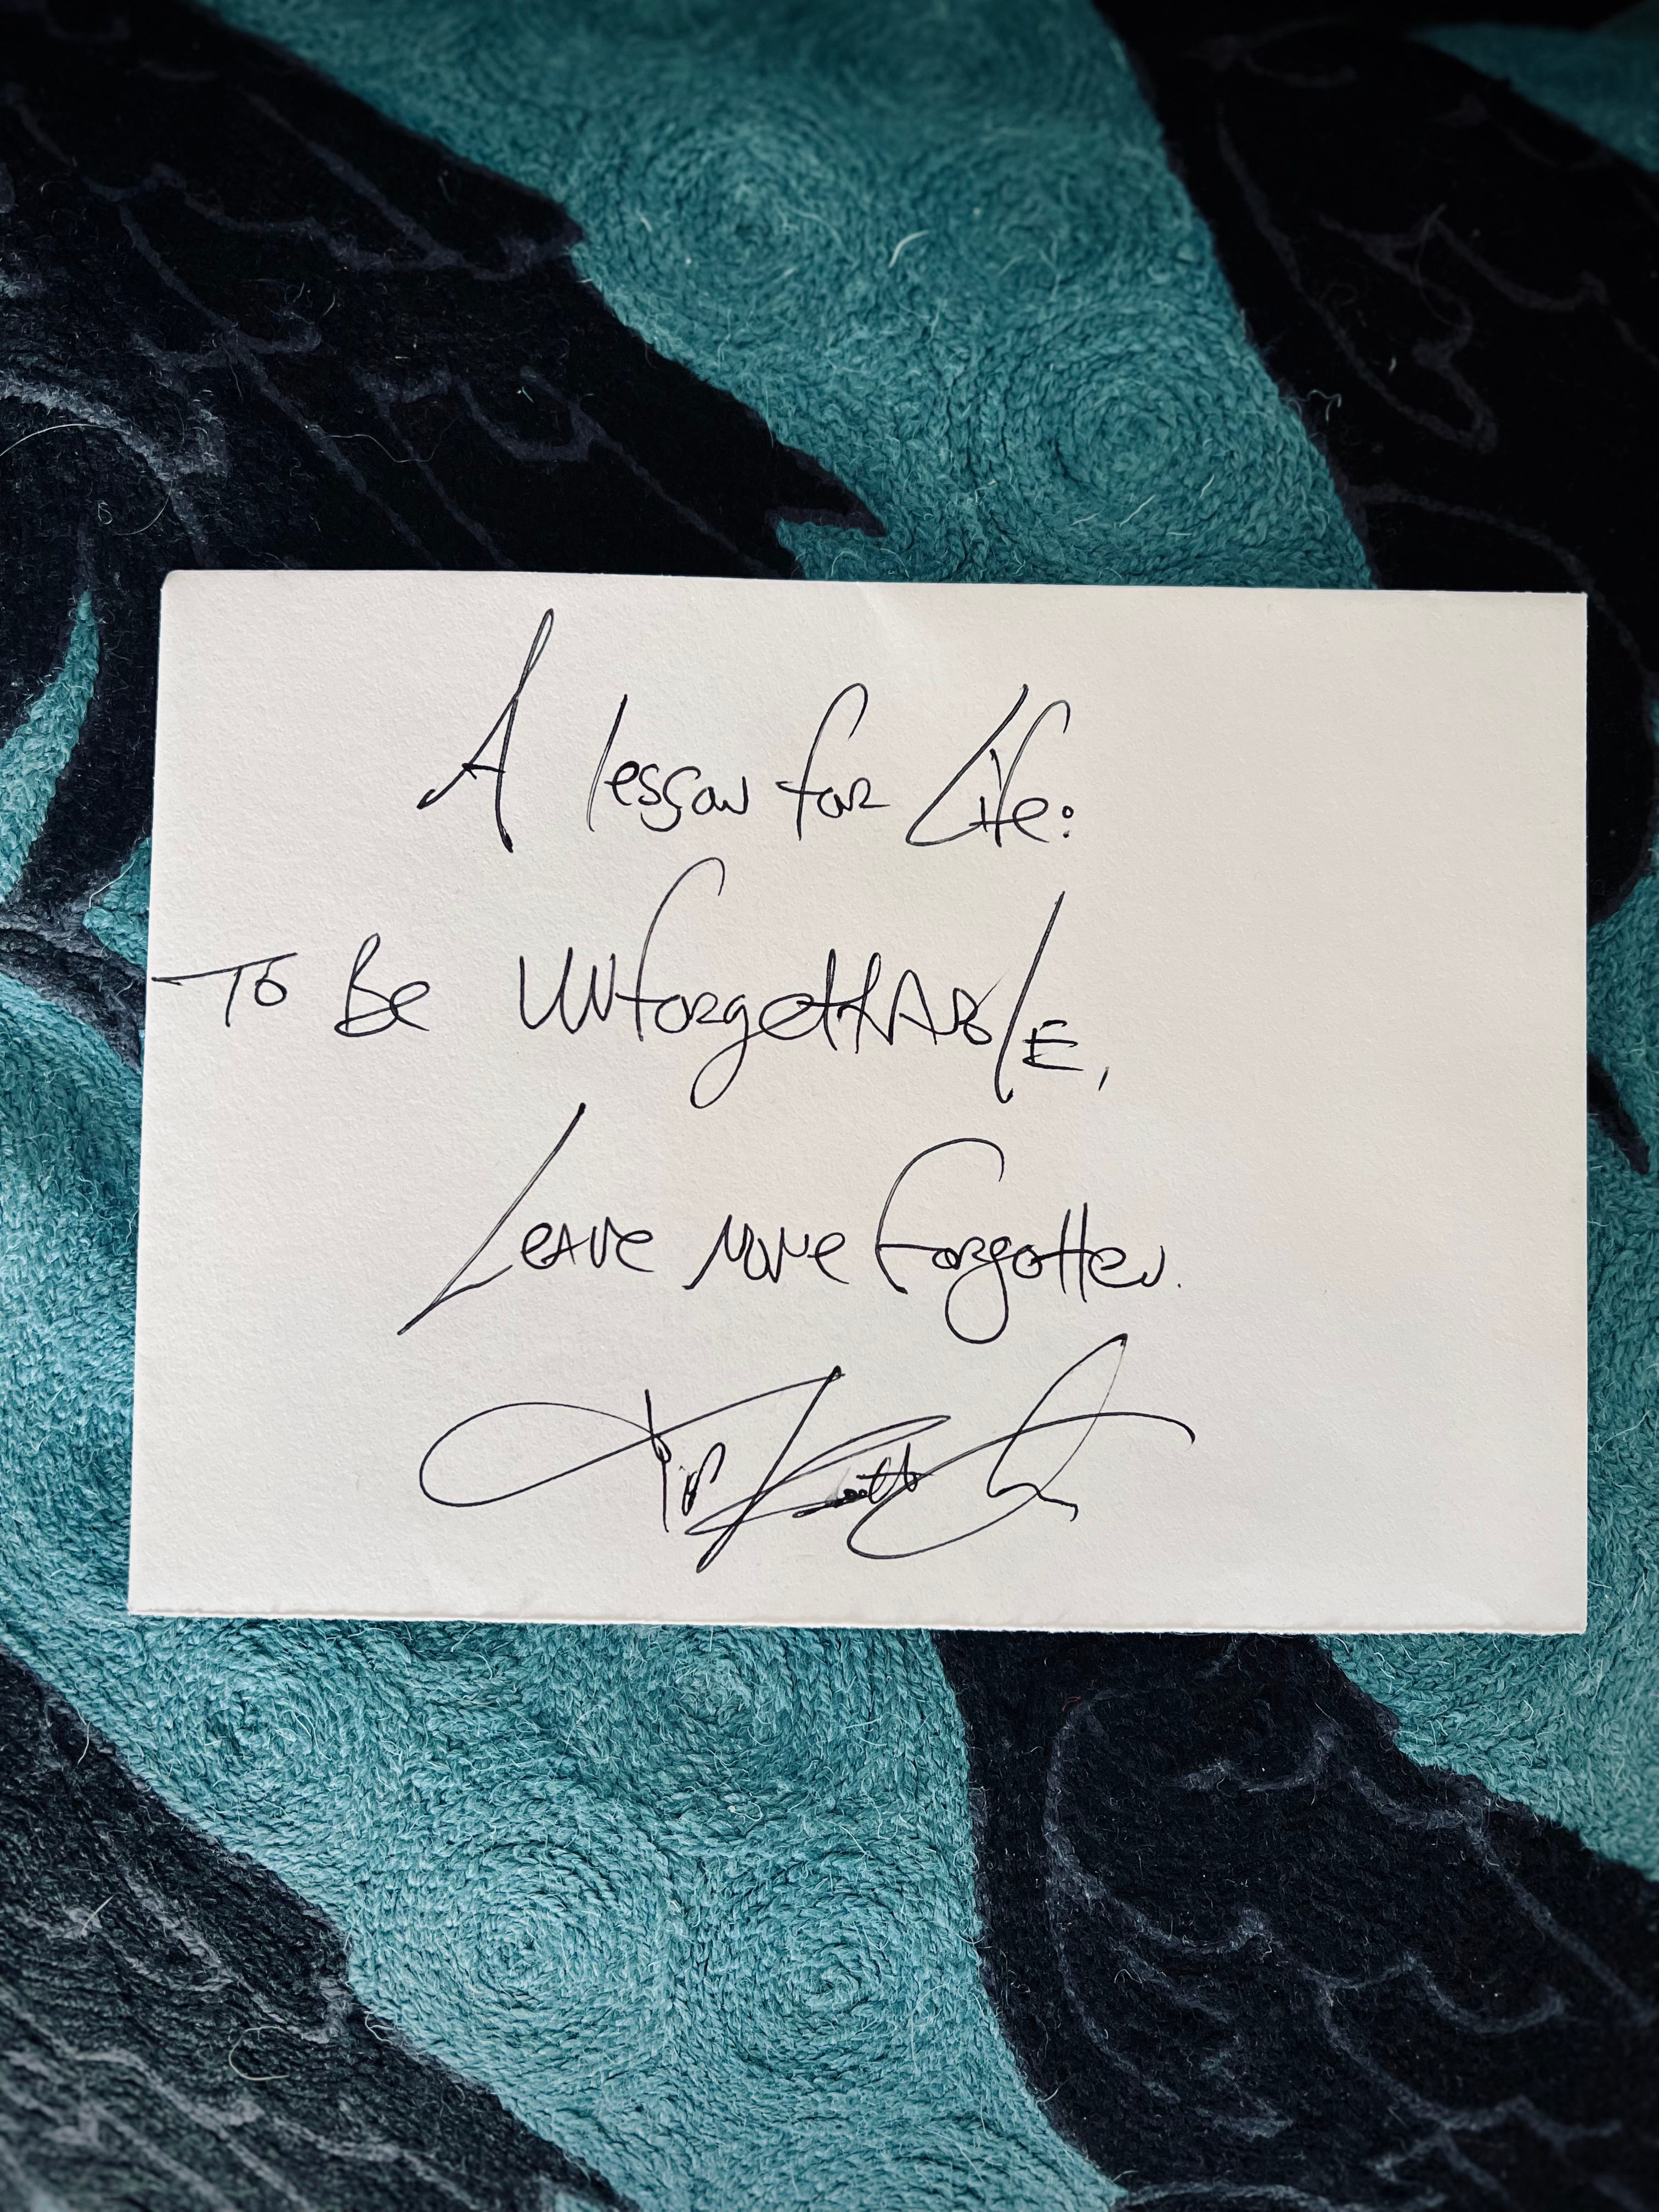 A lesson for Life:
To Be UNforgettABlE,
LeAve NoNe Forgotten.